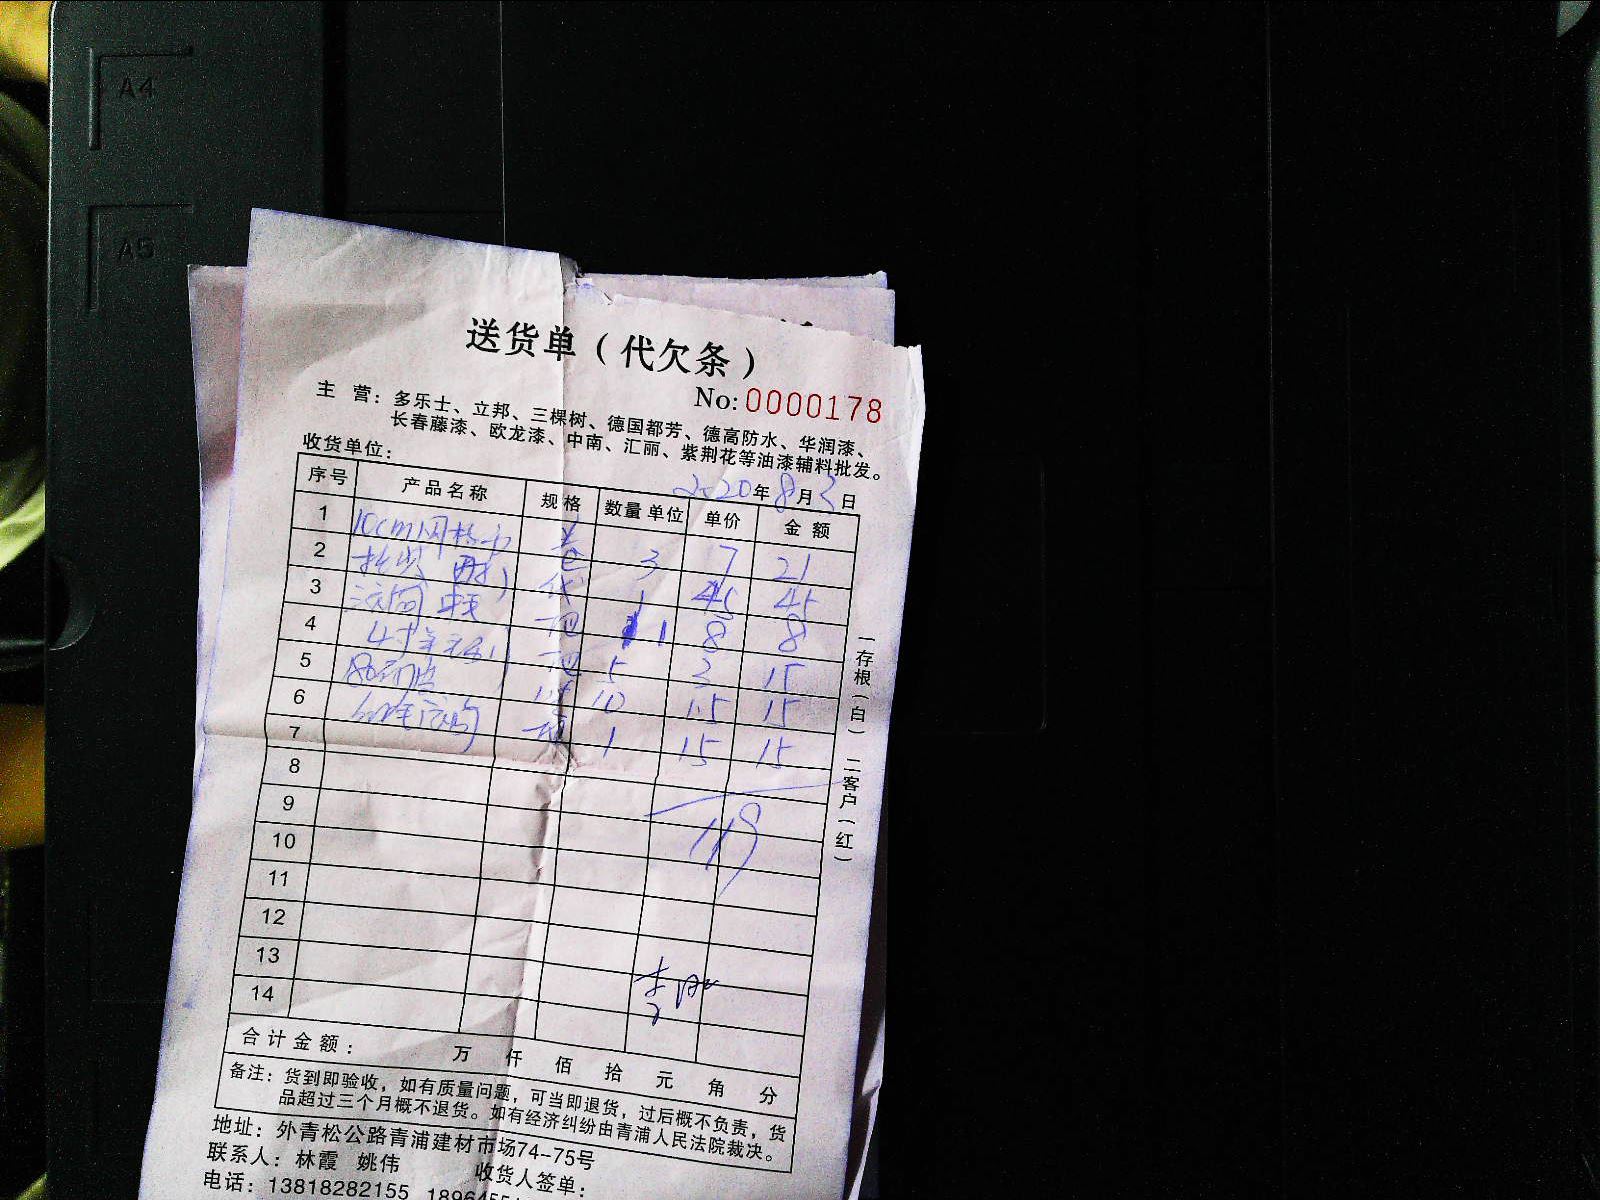 A4
A5
送货单（代欠条）
No: 0000178
主 营：多乐士、立邦、三棵树、德国都芳、德高防水、华润漆、
长春藤漆、欧龙漆、中南、汇丽、紫荆花等油漆辅料批发。
收货单位：
2020年8月2日
序号 产品名称 规格 数量 单位 单价 金额
1 10cm网格布 卷 3 7 21
2 代 1 45 45
3 把 1 8 8
4 4寸羊毛刷 把 5 3 15
5 10 1.5 15
6 1 15 15
7
8
119
9
10
11
12
13
14
合计金额： 万 仟 佰 拾 元 角 分
备注：货到即验收，如有质量问题，可当即退货，过后概不负责，货
品超过三个月概不退货。如有经济纠纷由青浦人民法院裁决。
地址：外青松公路青浦建材市场74-75号
联系人：林霞 姚伟 收货人签单：
电话：13818282155 1896455
一存根（白） 二客户（红）